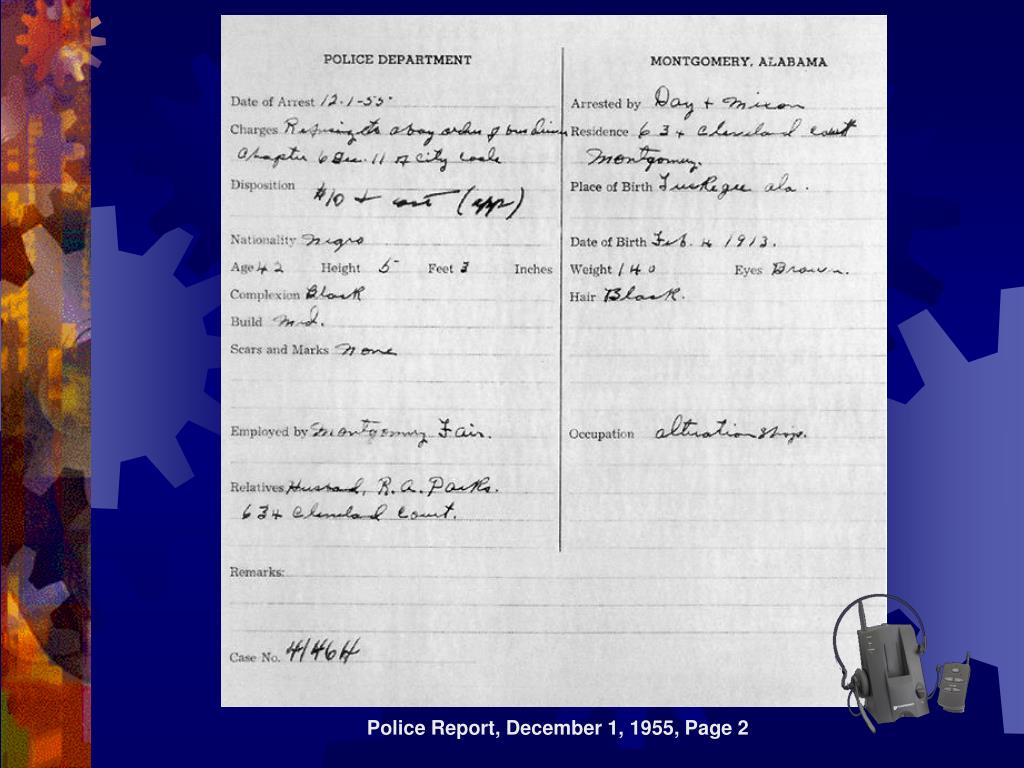 POLICE DEPARTMENT
MONTGOMERY, ALABAMA
Date of Arrest 12-1-55
Arrested by Day + Mixon
Charges Refusing to abay order of bus driver
Chapter 6 Sec. 11 of City Code
Residence 634 Cleveland Court
Montgomery.
Disposition $10 + cost (app)
Place of Birth Tuskegee ala.
Nationality Negro
Date of Birth Feb. 4 1913.
Age 42 Height 5 Feet 3 Inches
Weight 140 Eyes Brown.
Complexion Black
Hair Black.
Build Med.
Scars and Marks None
Employed by Montgomery Fair.
Occupation altration shop.
Relatives Husband, R.A. Parks.
634 Cleveland Court.
Remarks:
Case No. 41464
Police Report, December 1, 1955, Page 2